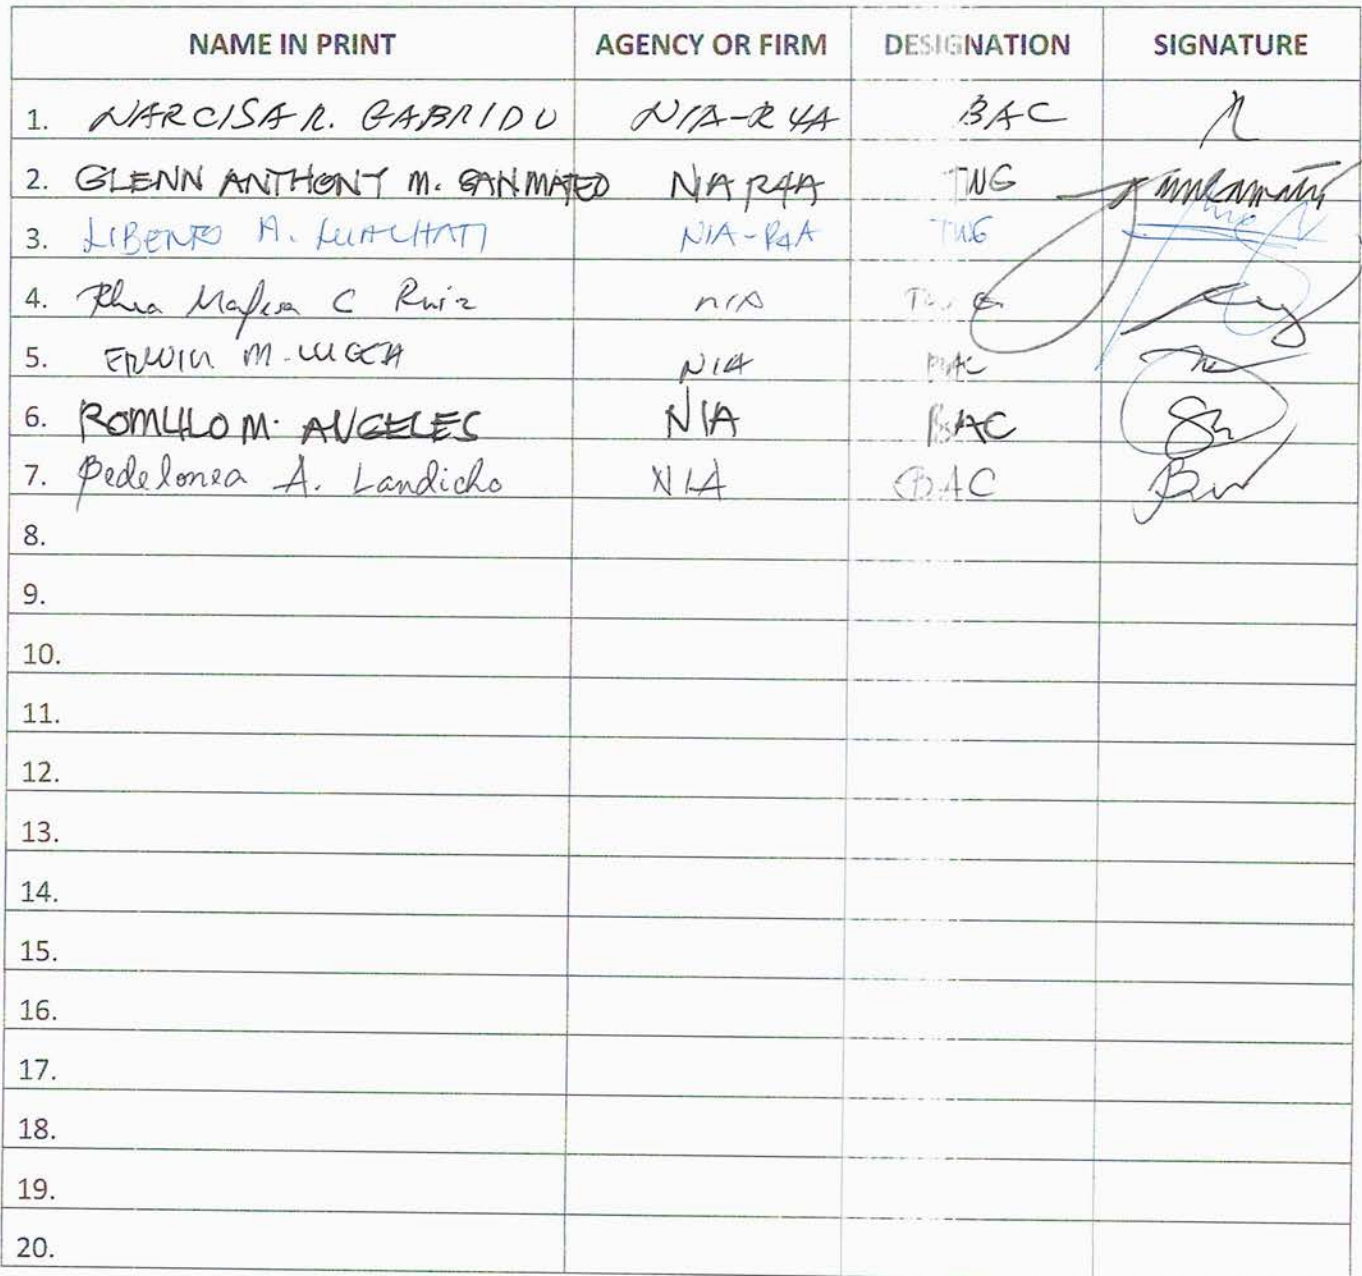 NAME IN PRINT AGENCY OR FIRM DESIGNATION SIGNATURE
1. NARCISA R. GABRIDO NIA-R4A BAC
2. GLENN ANTHONY M. SAN MATEO NIA R4A TWG
3. LIBERTO A. LUALHATI NIA-R4A TWG
4. Rhea C Ruiz NIA TWG
5. ERWIN M. LUCGA NIA BAC
6. ROMULO M. ANGELES NIA BAC
7. Bedelonea A. Landicho NIA BAC
8.
9.
10.
11.
12.
13.
14.
15.
16.
17.
18.
19.
20.